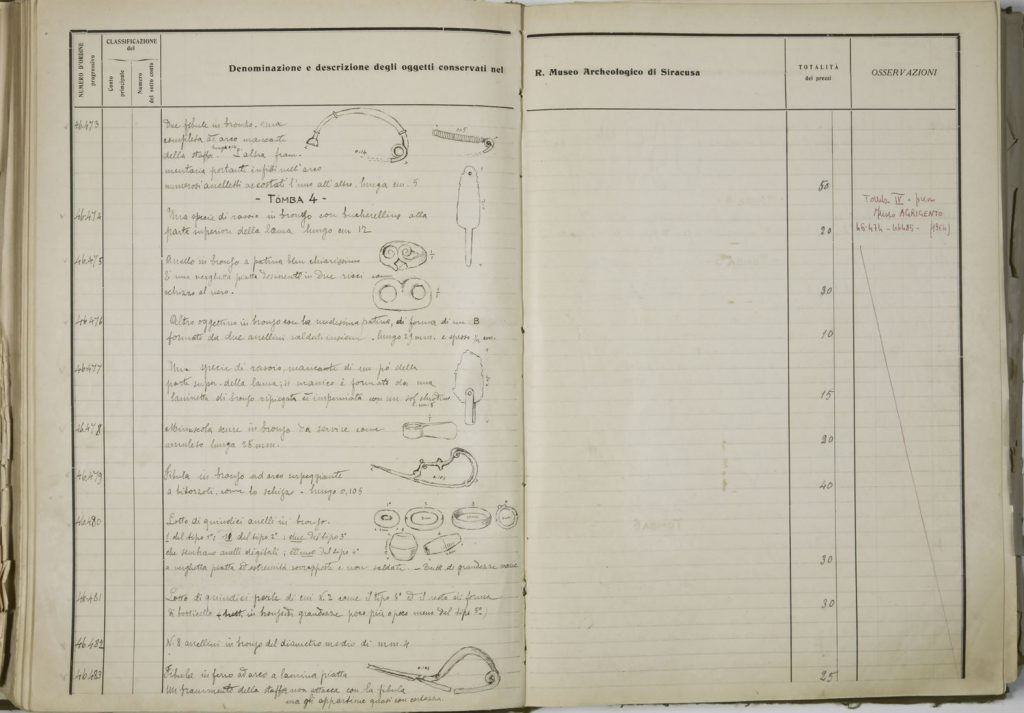 NUMERO D'ORDINE progressivo
CLASSIFICAZIONE del
Conto principale
Numero del sotto conto
Denominazione e descrizione degli oggetti conservati nel R. Museo Archeologico di Siracusa
TOTALITÀ dei prezzi
OSSERVAZIONI
46473
Due fibule in bronzo, una
completa ad arco mancante
della staffa. L'altra fram-
mentaria portante infissi nell'arco
numerosi anelletti accostati l'uno all'altro. lunga cm. 5
50
- TOMBA 4 -
46474
Una specie di rasoio in bronzo con bucherellino alla
parte inferiore della lama lungo cm 12
20
Tomba IV - presso
Museo AGRIGENTO
46474 - 46485 -
46475
Anello in bronzo a patina bleu chiarissimo
di una verghetta piatta desinente in due ricci come
schizzo al vero.
30
46476
Altro oggettino in bronzo con la medesima patina, di forma di un B
formato da due anellini saldati insieme. lungo 29 mm. e spesso ½ cm.
10
46477
Una specie di rasoio, mancante di un pò della
parte super. della lama; il manico è formato da una
laminetta di bronzo ripiegata ed imperniata con un sol chiodino
15
46478
Minuscola scure in bronzo da servire come
amuleto lunga 28 mm.
20
46479
Fibula in bronzo ad arco serpeggiante
a bitorzoli, come lo schizzo - lungo 0,105
40
46480
Lotto di quindici anelli in bronzo.
1 del tipo 1°; del tipo 2°; due del tipo 3°
che sembrano anelli digitali; ed uno del tipo 4°
a verghetta piatta ad estremità sovrapposte e non saldate. - Tutti di grandezze
30
46481
Lotto di quindici perle di cui N. 2 come il tipo 5° ed il resto di forma
di botticello in bronzo di grandezza poco più o poco meno del tipo 5°)
30
46482
N. 8 anellini in bronzo del diametro medio di mm. 4
46483
Fibula in ferro ad arco a lamina piatta
Un frammento della staffa non attacca con la fibula
ma gli appartiene quasi con certezza.
25